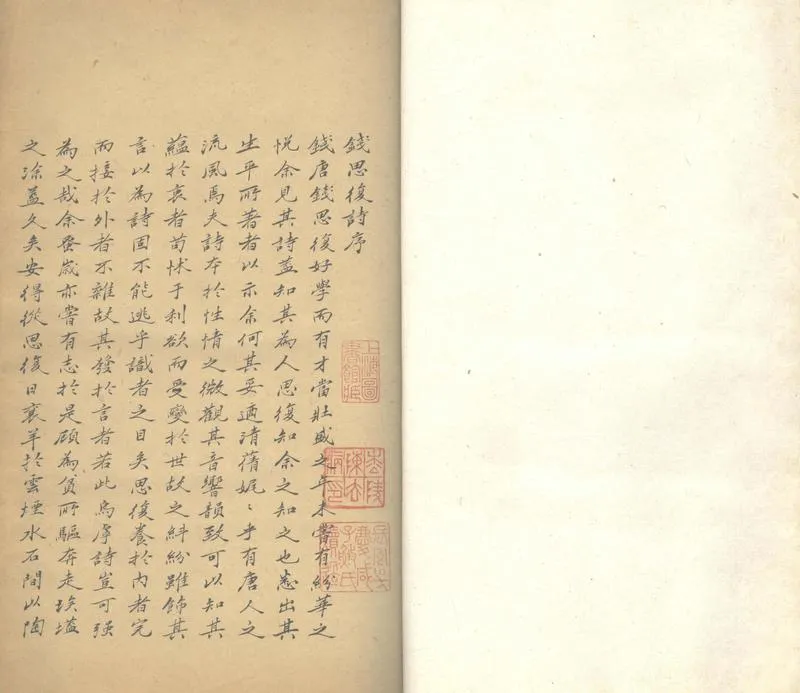 錢思復詩序
錢唐錢思復好學而有才當壯盛之年未嘗有紛華之
悅余見其詩蓋知其為人思復知余之知之也悉出其
生平所著者以示余何其妥適清蒨娓〻乎有唐人之
流風焉夫詩本於性情之微觀其音響韻致可以知其
蘊於衷者苟怵于利欲而受變於世故之糾紛雖飾其
言以為詩固不能逃乎識者之目矣思復養於內者完
而接於外者不雜故其發於言者若此烏虖詩豈可強
為之哉余蚤歲亦嘗有志於是顧為貧所驅奔走埃壒
之塗蓋久矣安得從思復日襄羊於雲煙水石間以陶
上海圖
書館藏